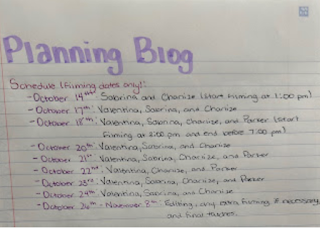 Planning Blog
Schedule (filming dates only):
- October 14th: Sabrina and Charlise (start filming at 1:00 pm)
- October 17th: Valentina, Sabrina, and Charlise
- October 18th: Valentina, Sabrina, Charlise, and Parker (start
filming at 2:00 pm and end before 7:00 pm)
- October 20th: Valentina, Sabrina, and Charlise
- October 21st: Valentina, Sabrina, Charlise, and Parker
- October 22nd: Valentina, Charlise, and Parker
- October 23rd: Valentina, Sabrina, Charlise, and Parker
- October 24th: Valentina, Sabrina, and Charlise
- October 26th - November 8th: Editing, any extra filming if necessary,
and final touches.